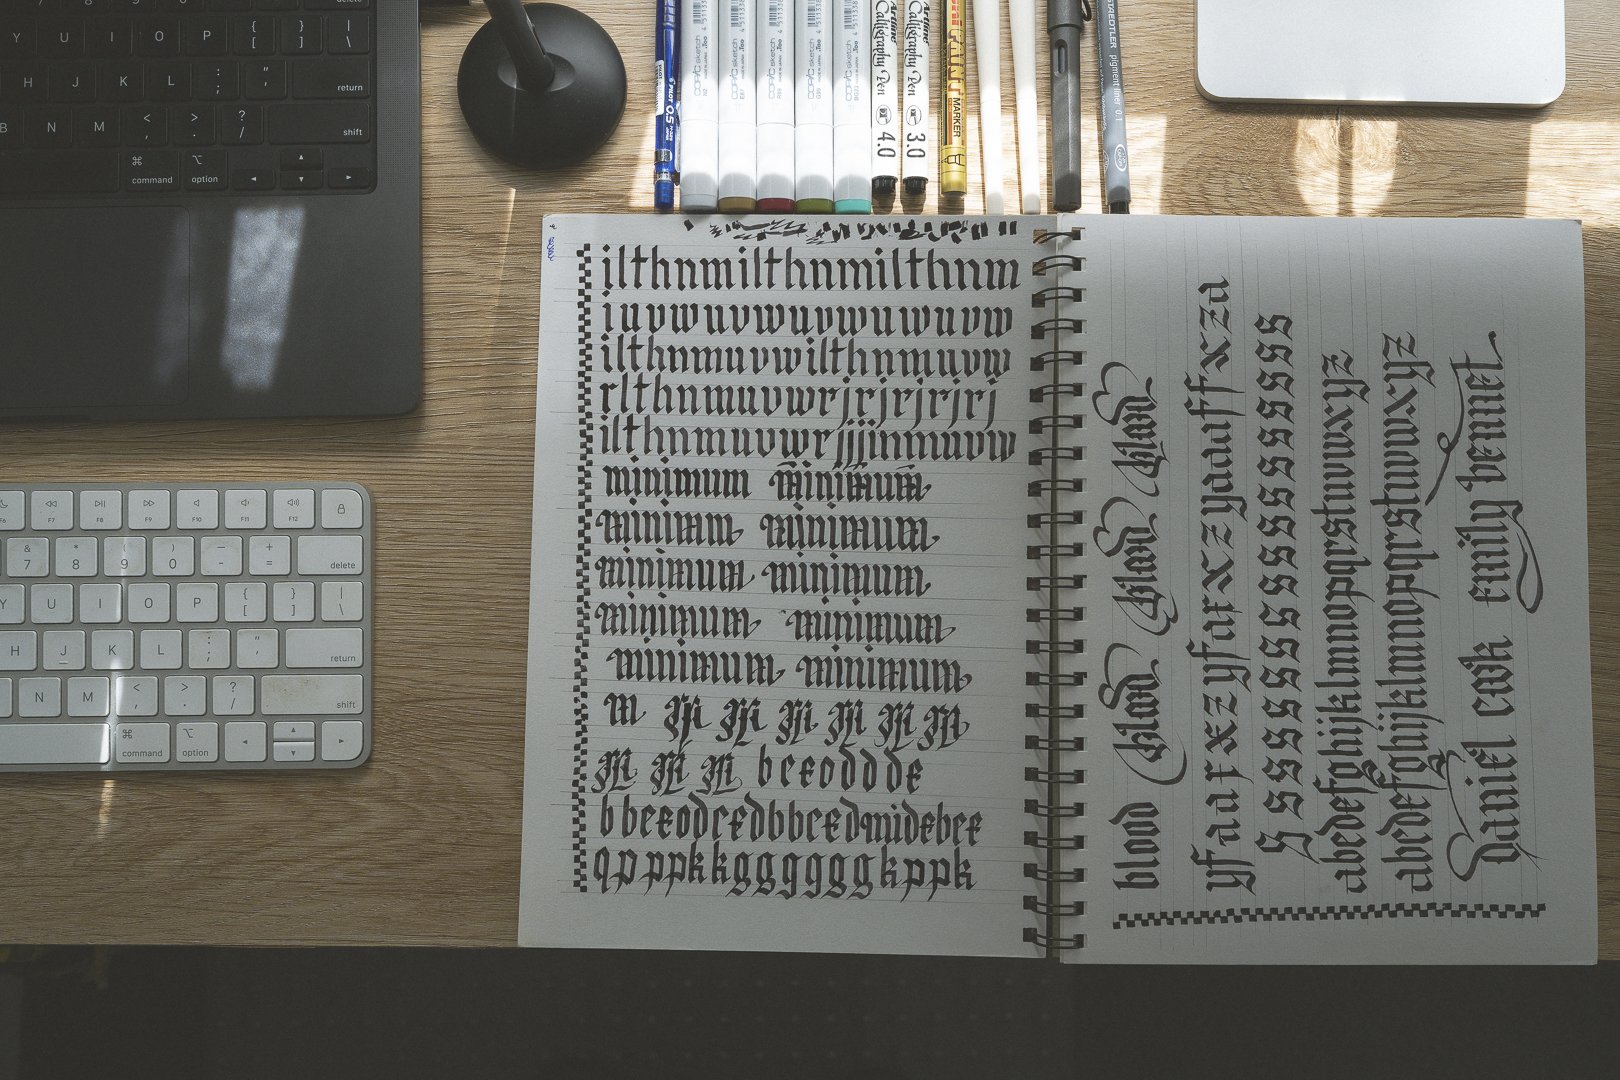 delete
Y U I O P { [ } ] | \
H J K L : ; " ' return
B N M < , > . ? / shift
⌘ command ⌥ option
PILOT 0.5
COPIC sketch
COPIC sketch
COPIC sketch
COPIC sketch
COPIC sketch
Artline Calligraphy Pen 4.0
Artline Calligraphy Pen 3.0
PAINT MARKER
STAEDTLER pigment liner 0.1
F6 F7 F8 F9 F10 F11 F12
& 7 * 8 ( 9 ) 0 _ - + = delete
Y U I O P { [ } ] | \
H J K L : ; " ' return
N M < , > . ? / shift
⌘ command ⌥ option
ilthnmilthnmilthnm
iuvwuvwuvwuwuvw
ilthnmuvwilthnmuvw
rlthnmuvwrjrjrjrjrj
ilthnmuvwrjjjinmuvw
minimum minimum
minimum minimum
minimum minimum
minimum minimum
minimum
m m m m m m m
m m m bceoddde
qppppkkggggggkppk
blood blood blood blood
abcdefghijklmnopqrstuvwxyz
abcdefghijklmnopqrstuvwxyz
Daniel cook emily bennet